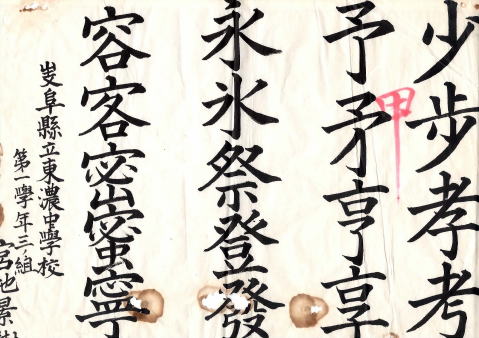 少步孝考
予矛亨享
甲
永氷祭登發
容客密蜜寧
岐阜縣立東濃中學校
第一學年三組
宮地景